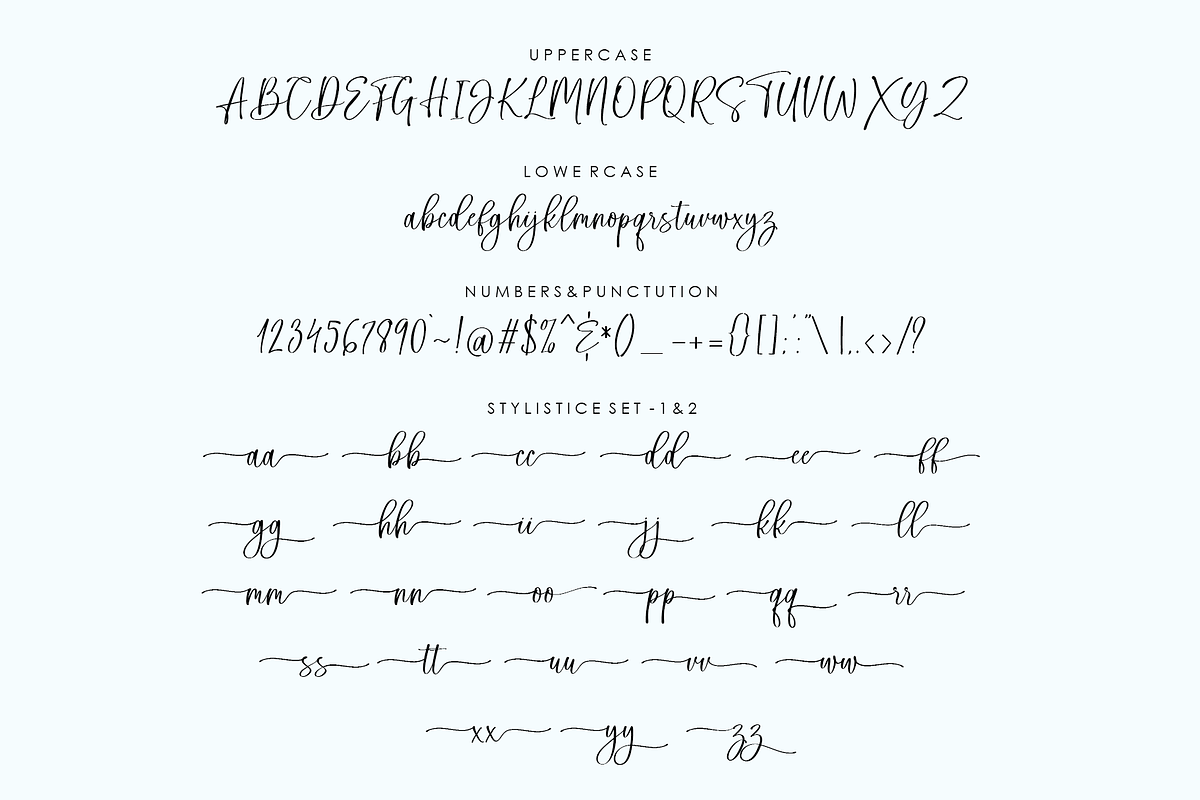 UPPERCASE
ABCDEFGHIJKLMNOPQRSTUVWXYZ
LOWERCASE
abcdefghijklmnopqrstuvwxyz
NUMBERS&PUNCTUTION
1234567890`~!@#$%^&*()_-+={}[];:'"\|,.<>/?
STYLISTICE SET -1&2
aa bb cc dd ee ff
gg hh ii jj kk ll
mm nn oo pp qq rr
ss tt uu vv ww
xx yy zz